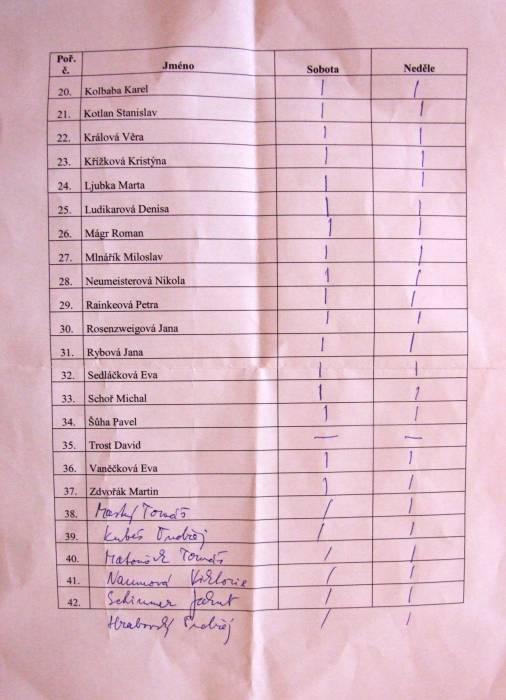 Poř. č. Jméno Sobota Neděle
20. Kolbaba Karel | |
21. Kotlan Stanislav | |
22. Králová Věra | |
23. Křížková Kristýna | |
24. Ljubka Marta | |
25. Ludikarová Denisa | |
26. Mágr Roman | |
27. Mlnářík Miloslav | |
28. Neumeisterová Nikola | |
29. Rainkeová Petra | |
30. Rosenzweigová Jana | |
31. Rybová Jana | |
32. Sedláčková Eva | |
33. Schoř Michal | |
34. Šůha Pavel | |
35. Trost David — —
36. Vaněčková Eva | |
37. Zdvořák Martin | |
38. Tomáš / |
39. Kubeš Ondřej / |
40. Matoušek Tomáš / |
41. Naumová Viktorie / |
42. Schinner / |
Hrabovský Ondřej / |